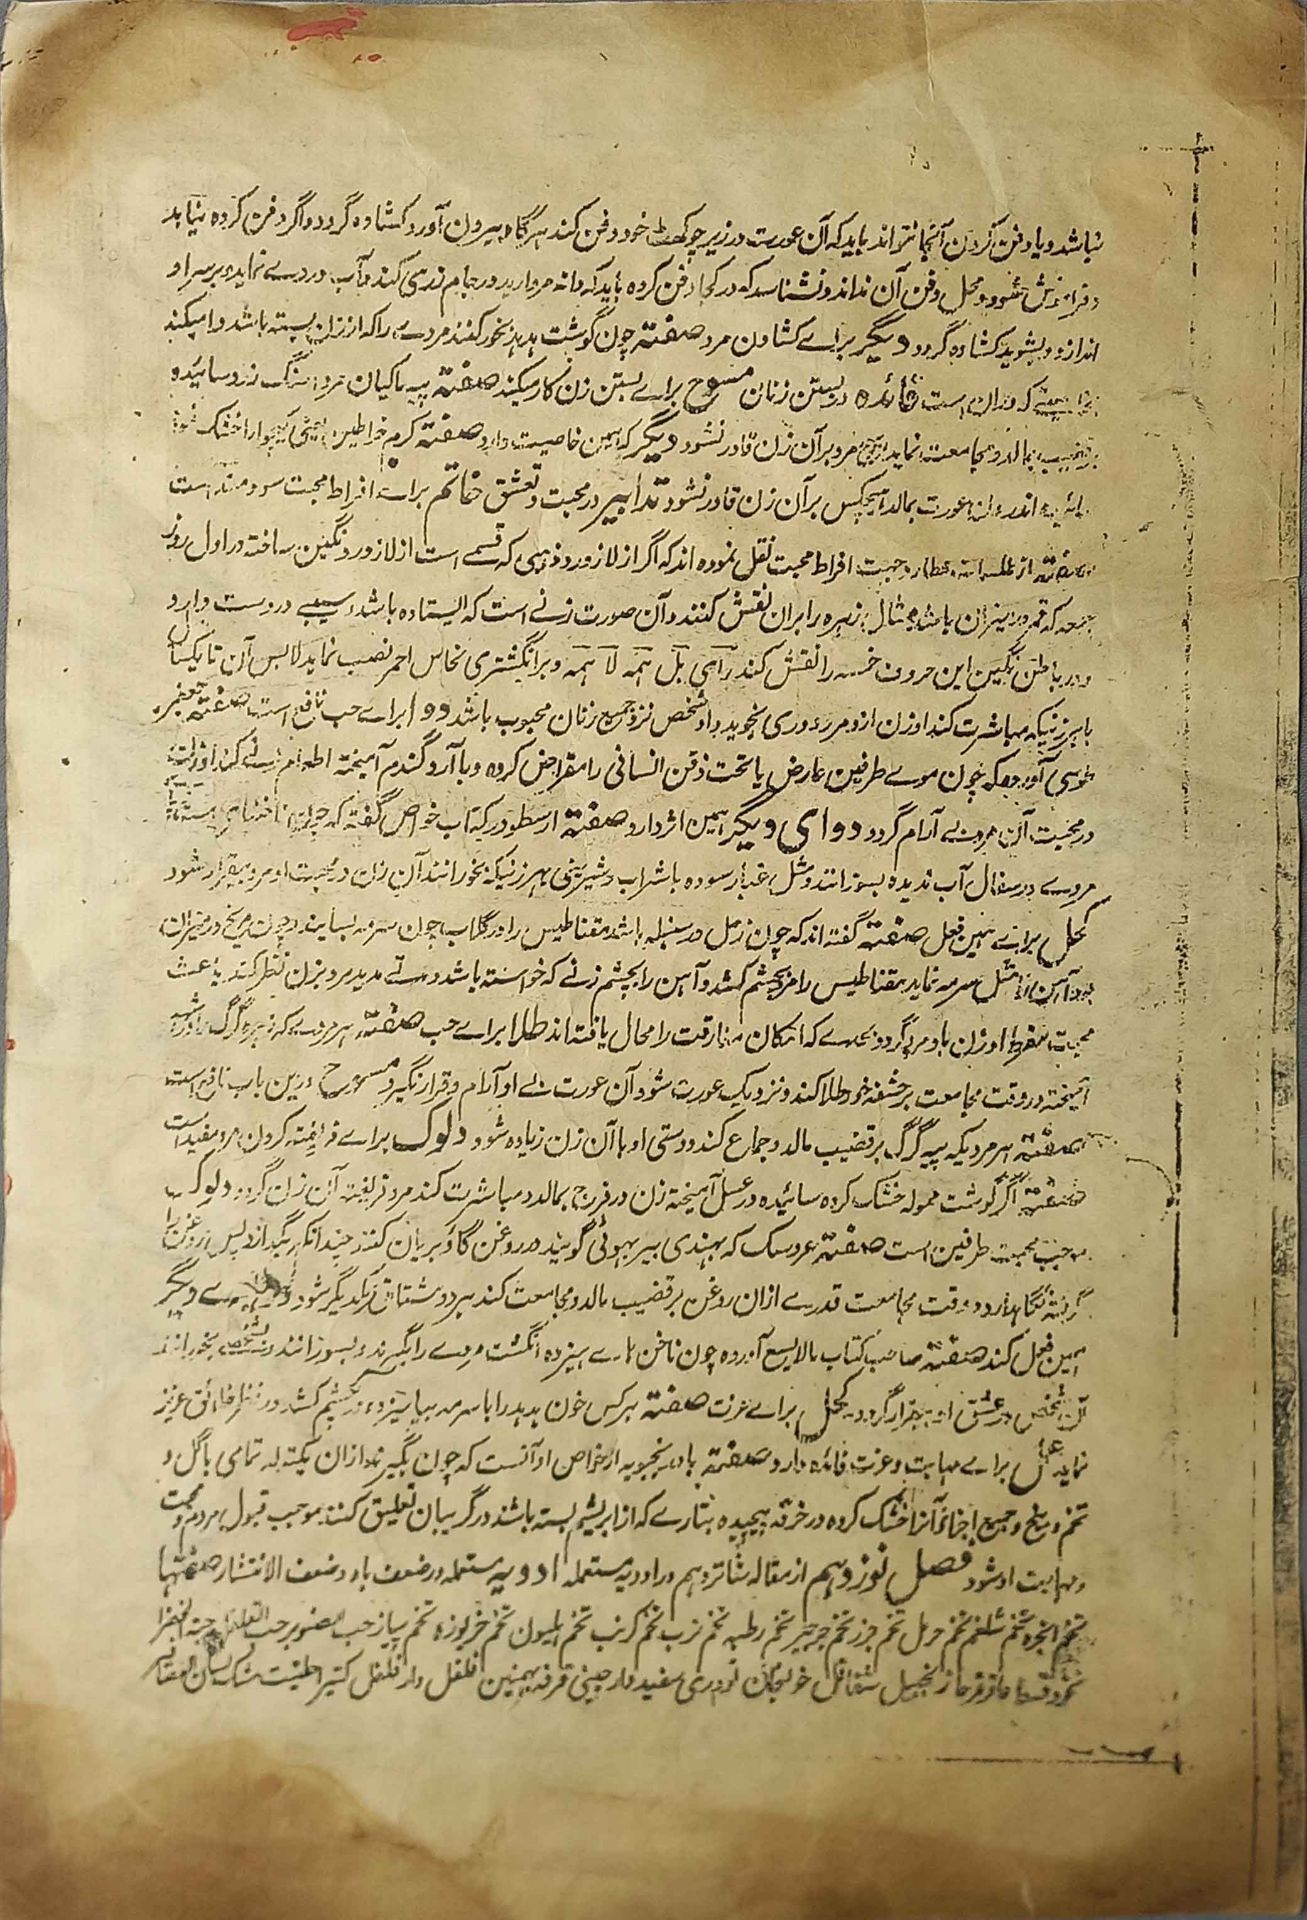 نباشد و یا دفن کردن آنجا نتواند باید که آن عورت در زیر چوکھٹ خود دفن کند هرگاه بیرون آورد کشاده گردد و اگر دفن کرده نیابد
و فراموش شود و محل دفن آن نداند و نشناسد که در کجا دفن کرده باید که دانه مروارید در جام کند و آب در وے نماید و بر سر او
اندازد و بشوید کشاده گردد دیگر براے کشادن مرد صفته چون گوشت هدهد بخور کنند مردے را که از زن بسته باشد وا میکند
که دران است فائده در بستن زنان مسوح براے بستن زن کار میکند صفته پیه ماکیان زرد سائیده
بر قضیب بمالد و مجامعت نماید هیچ مرد بر آن زن قادر نشود دیگر که همین خاصیت دارد صفته کرم خراطین یعنی کیچوا را خشک
اندر عورت بمالد هیچکس بر آن زن قادر نشود تدابیر در محبت و تعشق خاتم براے افراط محبت سودمند است
صفته از عطارد جهت افراط محبت نقل نموده اند که اگر از لاژورد ذهبی که قسمے است از لاژورد نگین ساخته در اول روز
جمعه که قمر در میزان باشد مثال زهره را بران نقش کنند و آن صورت زنے است که ایستاده باشد سیبے در دست دارد
و در باطن نگین این حروف خمسه را نقش کند و بر انگشتری نحاس احمر نصب نماید لابس آن تا یکسال
با هر زنیکه مباشرت کند او زن ازو هرگز دوری نجوید و او شخص نزد جمیع زنان محبوب باشد دوا براے حب نافع است صفته جعفر
طوسی آورده که چون موے طرفین عارض یا تحت ذقن انسانی را مقراض کرده و با آرد گندم آمیخته اطعام زنے کند او زن
در محبت آن مرد بے آرام گردد دوای دیگر همین اثر دارد صفته ارسطو در کتاب خواص گفته که چون ناخنهای
مردے در سفال آب ندیده بسوزانند و مثل غبار سوده با شراب و شیرینی بهر زنیکه بخورانند آن زن در محبت او مرد بیقرار شود
کحل براے همین فعل صفته گفته اند که چون زحل در سنبله باشد مقناطیس را در گلاب چون سرمه بسایند و چون مریخ در میزان
بود آهن را مثل سرمه نماید مقناطیس را مرد بچشم کشد و آهن را بچشم زنے که خواسته باشد و مدتے مدید مرد بزن نظر کند باعث
محبت مفرط او زن با و مرد گردد بحدے که امکان مفارقت را محال یافته اند طلا براے حب صفته هر مردے که زهره گرگ را
آمیخته در وقت مجامعت بر حشفه خود طلا کند و نزدیک عورت شود آن عورت بے او آرام و قرار نگیرد مسوح درین باب نافع است
صفته هر مردیکه پیه گرگ بر قضیب مالد و جماع کند دوستی او با آن زن زیاده شود دلوک براے فریفته کردن مرد مفید است
صفته اگر گوشت ممولہ خشک کرده سائیده در عسل آمیخته زن در فرج بمالد و مباشرت کند مرد فریفته آن زن گردد دلوک
موجب محبت طرفین است صفته عروسک که بهندی بیر بهوٹی گویند در روغن گاؤ بریان کنند چندانکه بگدازد پس روغن را
گرفته نگاهدارد و وقت مجامعت قدرے ازان روغن بر قضیب مالد و مجامعت کند هر دو مشتاق یکدیگر شود دواے دیگر
همین فعل کند صفته صاحب کتاب مالایسع آورده چون ناخن هاے هیزده انگشت مردے را بگیرند و بسوزانند و شخصے بخورانند
آن شخص در عشق او بیقرار گردد کحل براے عزت صفته هر کس خون هدهد را با سرمه بیامیزد و در چشم کشد در نظر خلائق عزیز
نماید عمل براے مهابت و عزت فائده دارد صفته بادرنجبویه از خواص او آنست که چون بگیرند ازان یکتوله تمامی با گل و
تخم و بیخ و جمیع اجزاء آنرا خشک کرده در خرقه پیچیده بتارے که از ابریشم بسته باشند در گریبان تعلیق کنند موجب قبول مردم و محبت
و مهابت او شود فصل نوزدهم از مقاله شانزدهم در ادویه مستعمله ادویه مستعمله در ضعف باه و ضعف الانتشار صفتها
تخم انجره تخم شلغم تخم حرمل تخم جزر تخم جرجیر تخم رطبه تخم ترب تخم کرنب تخم هلیون تخم خربوزه تخم پیاز حب الصنوبر حب القلقل حبة الخضرا
عاقرقرحا زنجبیل شقاقل خولنجان تودری سفید دارچینی قرفه بهمنین فلفل دار فلفل کتیرا حلتیت مشک لسان العصافیر